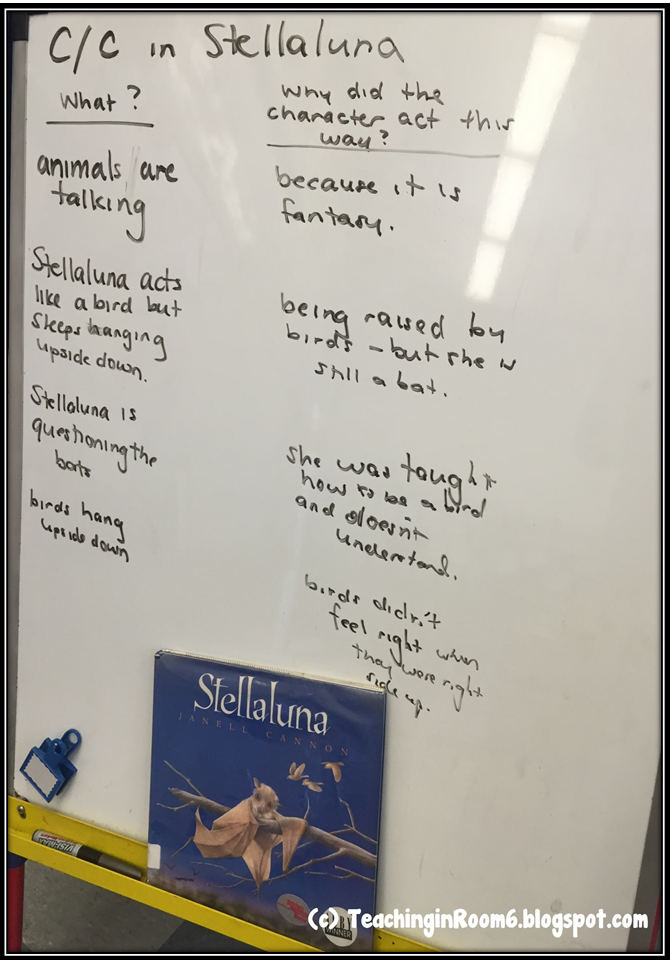 C/C in Stellaluna
What?
animals are
talking
Stellaluna acts
like a bird but
sleeps hanging
upside down.
Stellaluna is
questioning the
bats
birds hang
upside down
Why did the
character act this
way?
because it is
fantasy.
being raised by
birds - but she is
still a bat.
she was taught
how to be a bird
and doesn't
understand.
birds didn't
feel right when
they were right
side up.
Stellaluna
JANELL CANNON
WINNER
(c) TeachinginRoom6.blogspot.com